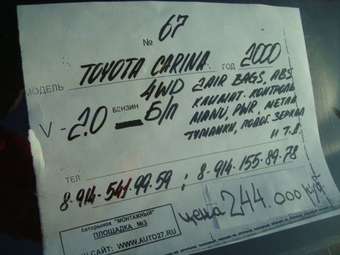 № 67
МОДЕЛЬ TOYOTA CARINA ГОД 2000
V - 2.0 БЕНЗИН Б/П 4WD 2AIR BAGS, ABS,
КЛИМАТ-КОНТРОЛЬ
МАНИ, PWR, МЕТАЛ
ТУМАНКИ, ПОДОГ. ЗЕРКАЛ
И Т.Д.
ТЕЛ 8-914-541-99-59 ; 8-914-155-89-78
Авторынок "МОНТАЖНЫЙ"
ПЛОЩАДКА №3
САЙТ: WWW.AUTO27.RU
цена 244.000 руб